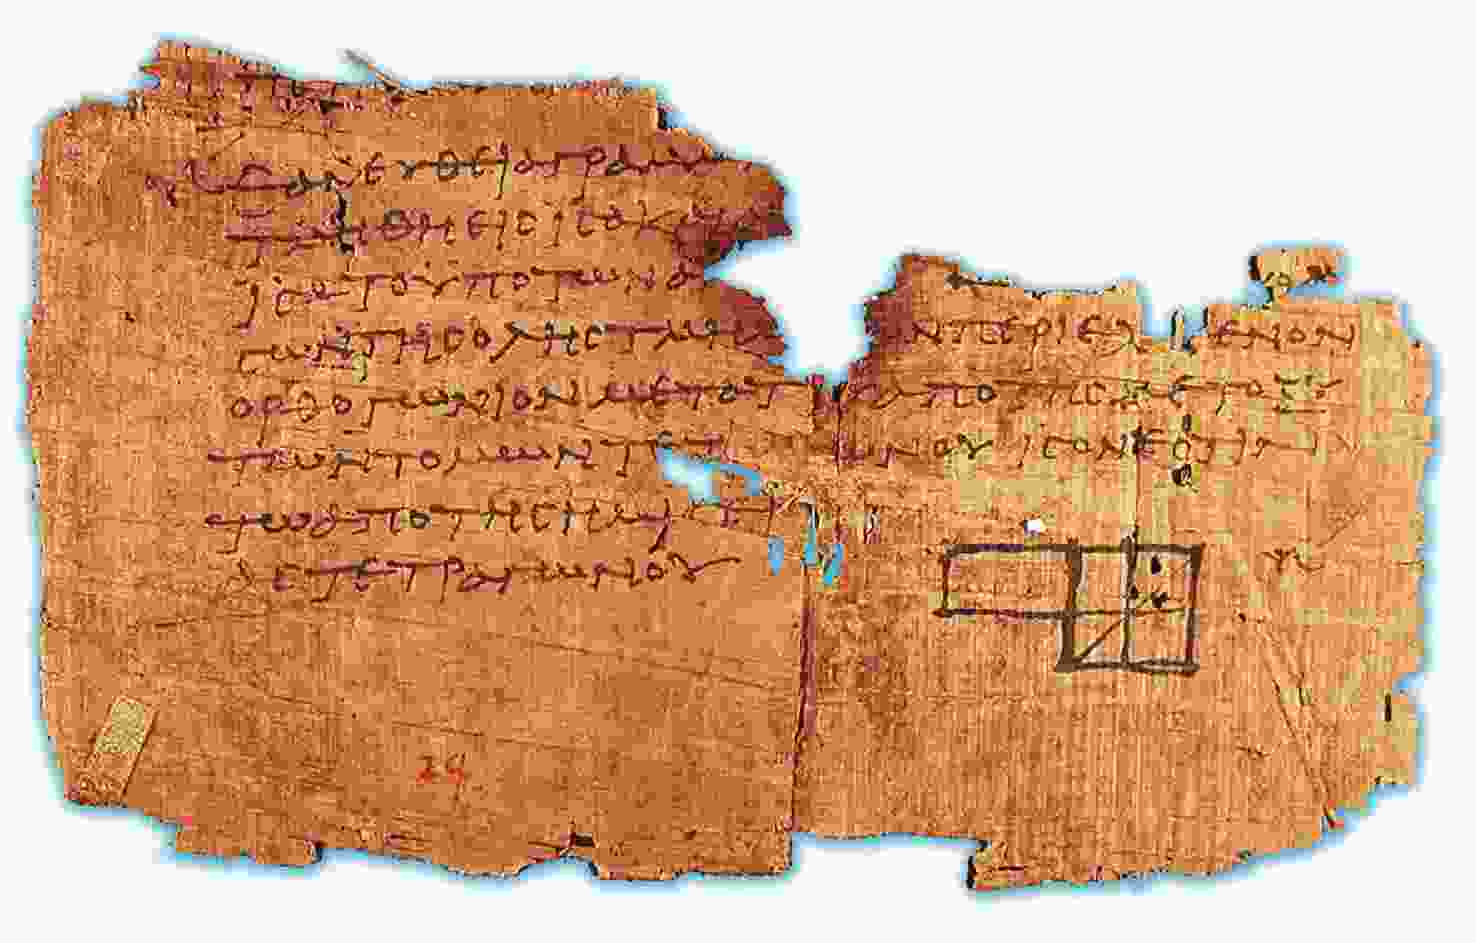 ΕΑΝ ΕΥΘΕΙΑ ΓΡΑΜΜ
ΤΜΗΘΗ ΕΙϹ ΙϹΑ Κ
ΙϹΑ ΤΟ ΥΠΟ ΤΩΝ Α
ϹΩΝ ΤΗϹ ΟΛΗϹ ΤΜΗΜ Ν ΠΕΡΙΕΧ ΕΝΟΝ
ΟΡΘΟΓΩΝΙΟΝ ΜΕΤΑ Τ ΑΠΟ ΤΗϹ ΜΕΤΟΞΥ
ΤΩΝ ΤΟΜΩΝ ΤΕΤ ΩΝΟΥ ΙϹΟΝ ΕϹΤΙΝ
ΤΩ ΑΠΟ ΤΗϹ ΗΜΙ
ΤΕΤΡΑΓΩΝΟΥ
29